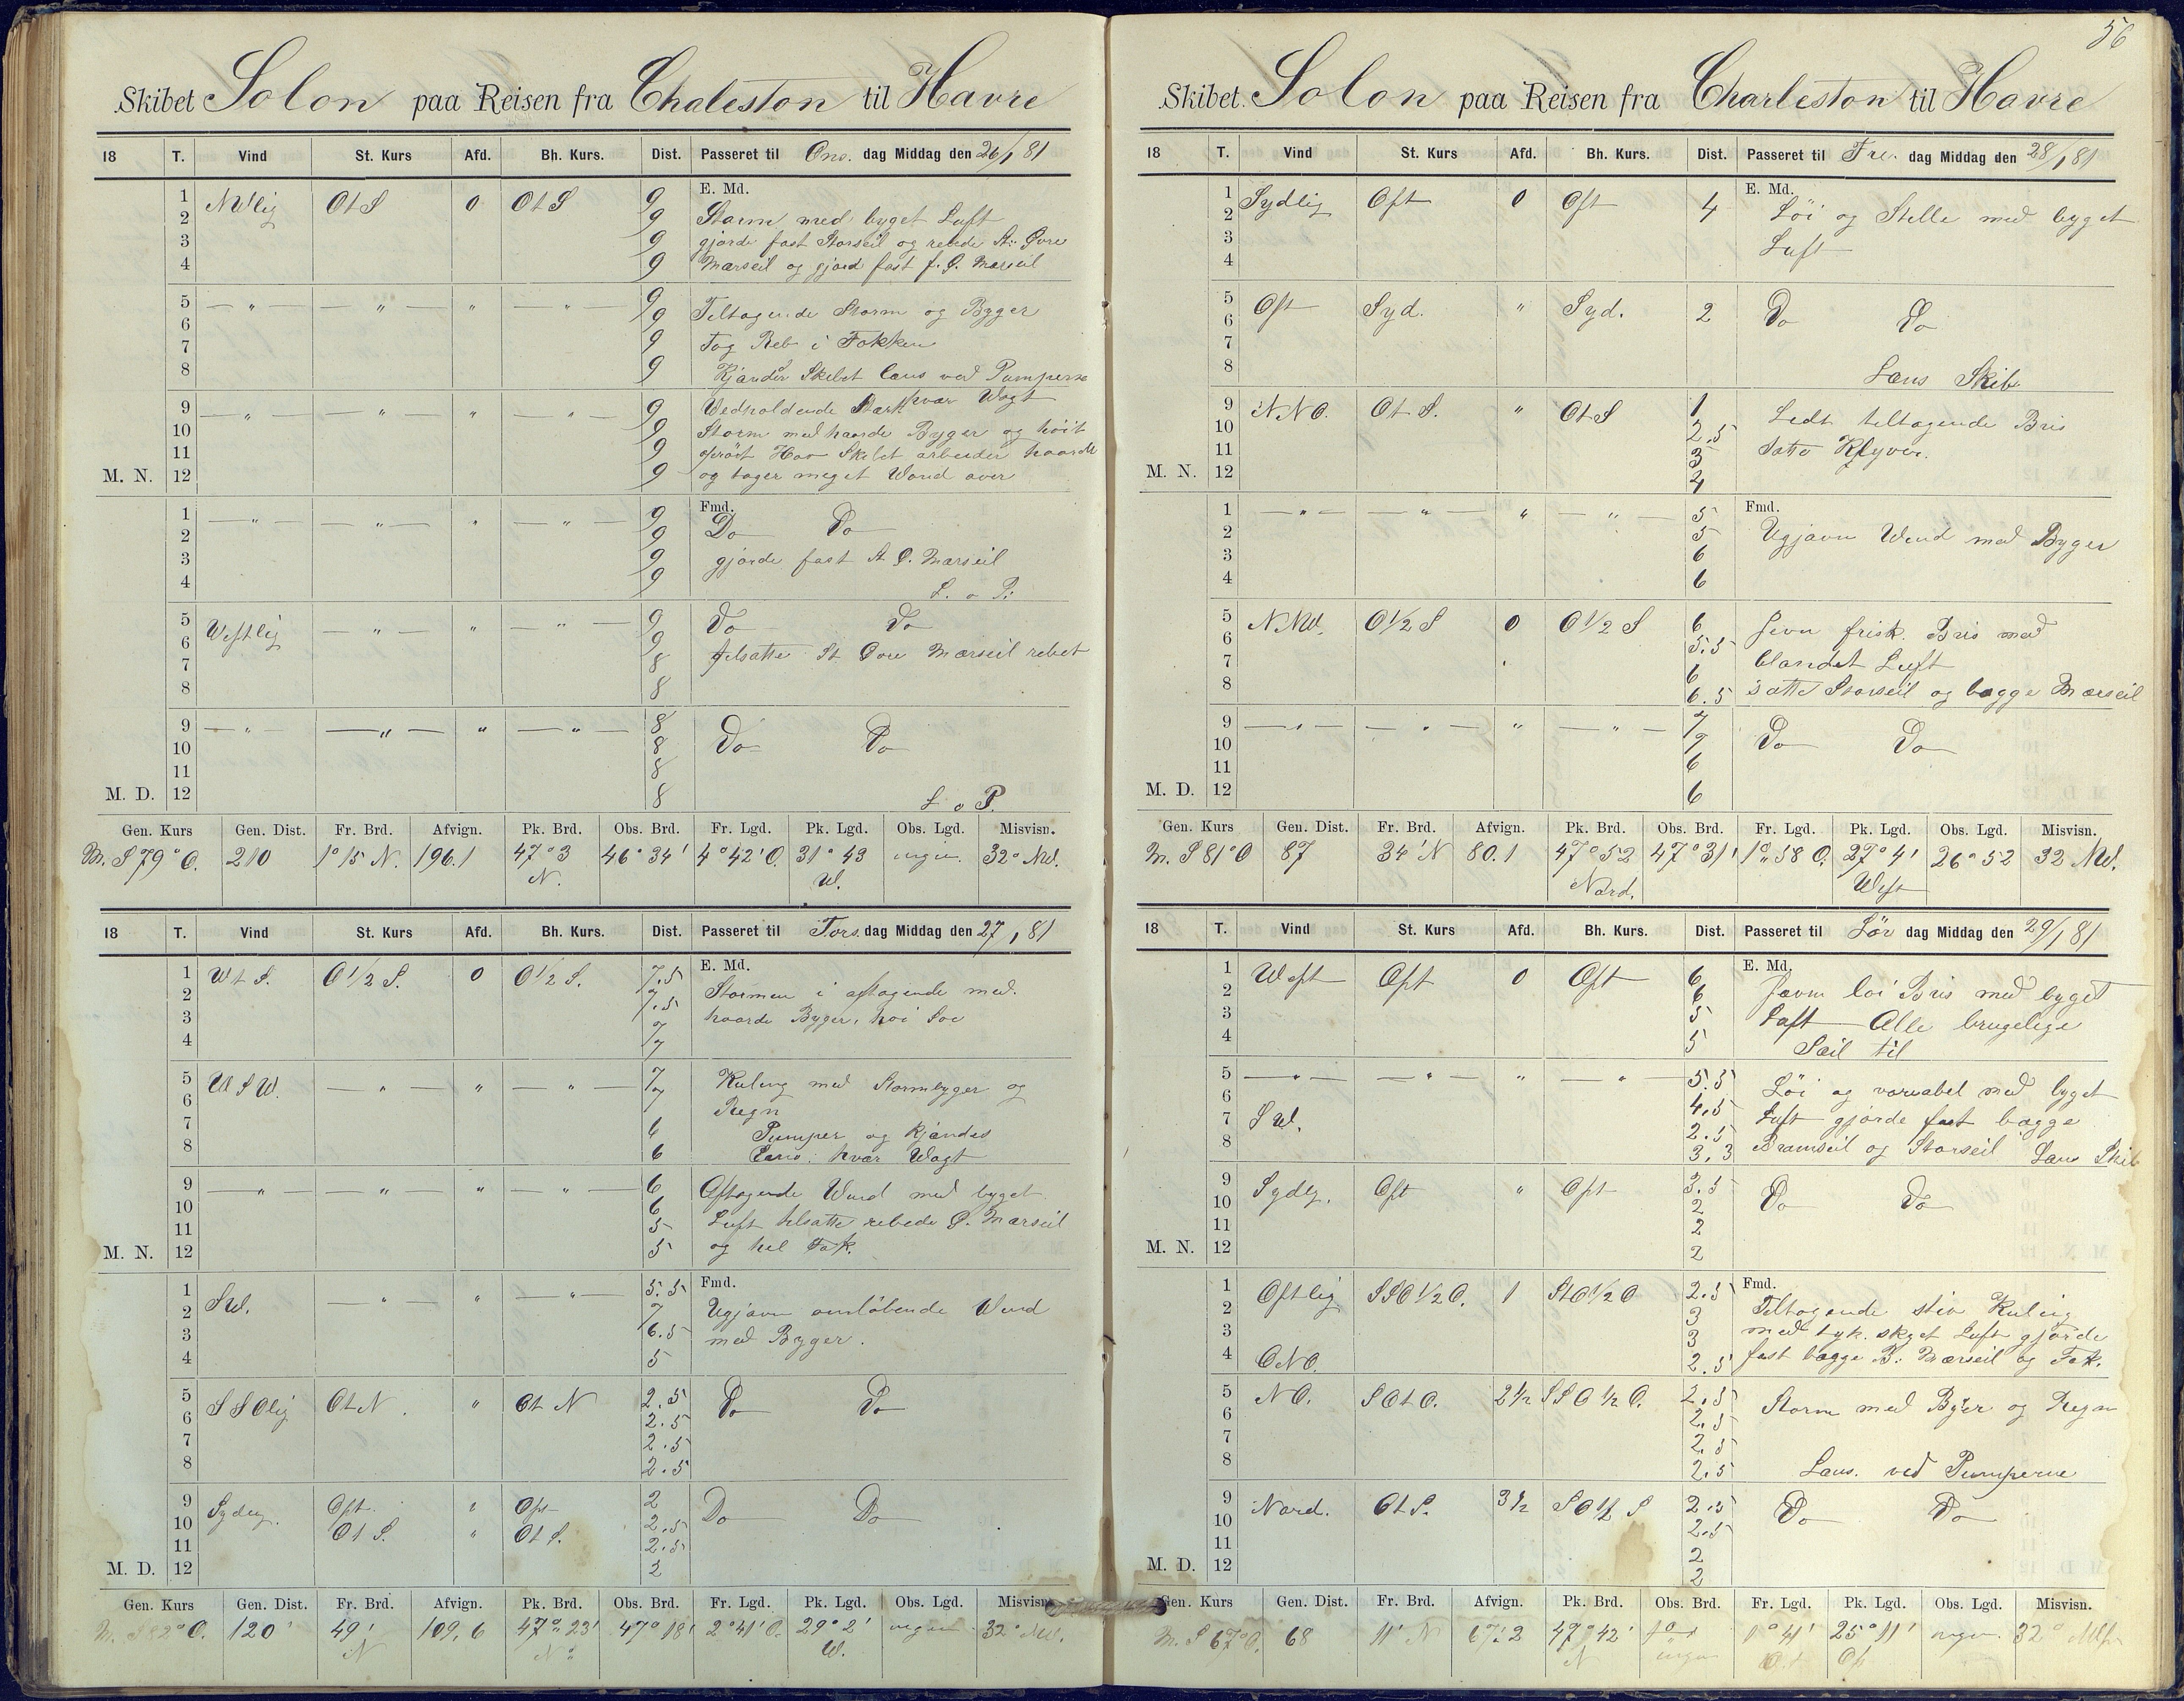 Skibet Solon paa Reisen fra Chaleston til Havre
18 T. Vind St. Kurs Afd. Bh. Kurs. Dist. Passeret til Ons. dag Middag den 26/1 81
E. Md.
1 NWlig OtS 0 OtS 9
2 9 Storm med byget Luft
3 9 gjorde fast Storseil og rebede St: Øvre
4 9 Mærseil og gjord fast f. Ø. Mærseil
5 — " — — " — " — " — 9
6 9 Tiltagende Storm og Byger
7 9 Tog Reb i Fokken
8 9 Kjander Skibet læns ved Pumperne
hvær Wagt
9 — " — — " — " — " — 9 Vedholdende Stærk
10 9 Storm med haarde Byger og höit
11 9 oprört Hav Skibet arbeider haardt
M. N. 12 9 og tager meget Vand over
Fmd.
1 — " — — " — " — " — 9 Do Do
2 9
3 9 gjorde fast St Ø. Mærseil
4 9 L. o P:
5 Westlig — " — " — " — 9 Do Do
6 9 tilsatte St Øvre Mærseil rebet
7 8
8 8
9 — " — — " — " — " — 8
10 8 Do Do
11 8
M. D. 12 8 L o P.
Gen. Kurs Gen. Dist. Fr. Brd. Afvign. Pk. Brd. Obs. Brd. Fr. Lgd. Pk. Lgd. Obs. Lgd. Misvisn.
M. S 79° O. 210 1° 15 N. 196.1 47° 3 46° 34' 4° 42' O. 31° 43 ingen 32° NW.
N. W.
18 T. Vind St. Kurs Afd. Bh. Kurs. Dist. Passeret til Tors. dag Middag den 27/1 81
E. Md.
1 Wt S. O 1/2 S. 0 O 1/2 S. 7.5
2 7.5 Stormen i aftagende med
3 7 haarde Byger, höi Söe
4 7
5 WSW. — " — " — " — 7 Kuling med Stormbyger og
6 7 Regn
7 6 Pumper og kjandes
8 6 Læns hvær Wagt
9 — " — — " — " — " — 6 Aftagende Wind med byget
10 6 Luft tilsatte rebede Ø. Mærseil
11 5 og hel Fok.
M. N. 12 5
Fmd.
1 SW. — " — " — " — 5.5
2 7 Ugjævn omlöbende Wind
3 6.5 med Byger.
4 5
5 SSOlig OtN. " OtN 2.5 Do Do
6 2.5
7 2.5
8 2.5
9 Sydlig. Ost. " Ost 2
10 Ot S. " Ot S. 2.5 Do Do
11 2.5
M. D. 12 2
Gen. Kurs Gen. Dist. Fr. Brd. Afvign. Pk. Brd. Obs. Brd. Fr. Lgd. Pk. Lgd. Obs. Lgd. Misvisn.
M. S 82° O. 120' 49' 109.6 47° 23' 47° 18' 2° 41' O. 29° 2' ingen 32° NW.
N N W.
56
Skibet Solon paa Reisen fra Charleston til Havre
18 T. Vind St. Kurs Afd. Bh. Kurs. Dist. Passeret til Fre. dag Middag den 28/1 81
E. Md.
1 Sydlig Ost 0 Ost 4
2 Löi og Stille med byget
3 Luft
4
5 Ost Syd. " Syd. 2 Do Do
6
7
8 Læns Skib
9 NNO. Ot S. " OtS 1 Lidt tiltagende Bris
10 2.5 Satte Klyver.
11 3
M. N. 12 4
Fmd.
1 — " — — " — " — " — 5
2 5 Ugjævn Wind med Byger
3 6
4 6
5 NNW. O 1/2 S 0 O 1/2 S 6 Jevn frisk Bris med
6 5.5 blandet Luft
7 6
8 6.5 satte Storseil og begge Mærseil
9 — " — — " — " — " — 7
10 7 Do Do
11 6
M. D. 12 6
Gen. Kurs Gen. Dist. Fr. Brd. Afvign. Pk. Brd. Obs. Brd. Fr. Lgd. Pk. Lgd. Obs. Lgd. Misvisn.
M. S 81° O 87 34' N 80.1 47° 52 47° 31' 1° 58 O. 27° 4' 26° 52 32 NW.
Nord. West
18 T. Vind St. Kurs Afd. Bh. Kurs. Dist. Passeret til Lör dag Middag den 29/1 81
E. Md.
1 West Ost 0 Ost 6
2 6 Jævn löi Bris med byget
3 5 Luft Alle brugelige
4 5 Seil til
5 — " — — " — " — " — 5.5 Löi og variabel med byget
6 4.5
7 SW. 2.5 Luft gjorde fast begge
8 3.3 Bramseil og Storseil Læns Skib
9 Sydlig. Ost " Ost 3.5
10 2 Do Do
11 2
M. N. 12 2
Fmd.
1 Ostlig SSO 1/2 O. 1 StO 1/2 O 2.5
2 3 Tiltagende stiv Kuling
3 3 med tyk skyet Luft gjorde
4 ONO. 2.5 fast begge B: Mærseil og Fok.
5 NO. SOtO. 2 1/2 SSO 1/2 O. 2.5
6 2.5 Storm med Byger og Regn
7 2.5
8 2.5 Læns ved Pumperne
9 Nord. Ot S. 3 1/2 SO 1/2 S 2.5
10 2.5 Do Do
11 2
M. D. 12 2
Gen. Kurs Gen. Dist. Fr. Brd. Afvign. Pk. Brd. Obs. Brd. Fr. Lgd. Pk. Lgd. Obs. Lgd. Misvisn.
M. S 67° O. 68 11' N 67.2 47° 42' ingen 1° 41' 25° 11' ingen 32°
N